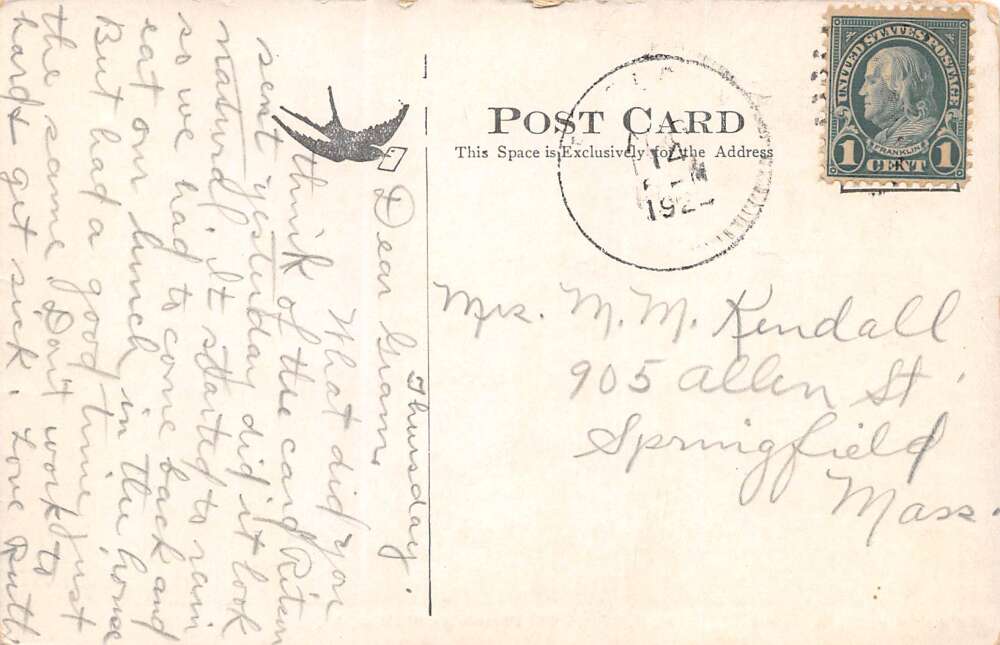 POST CARD
This Space is Exclusively for the Address
UNITED STATES POSTAGE
FRANKLIN
1 CENT 1
14
192
Mrs. M. M. Kendall
905 Allen St.
Springfield
Mass.
Thursday.
Dear Gram,
What did you
think of the card
sent yesterday did it look
natural. It started to rain
so we had to come back and
eat our lunch in the house
But had a good time just
the same. Don't work to
hard & get sick. Love Ruth.